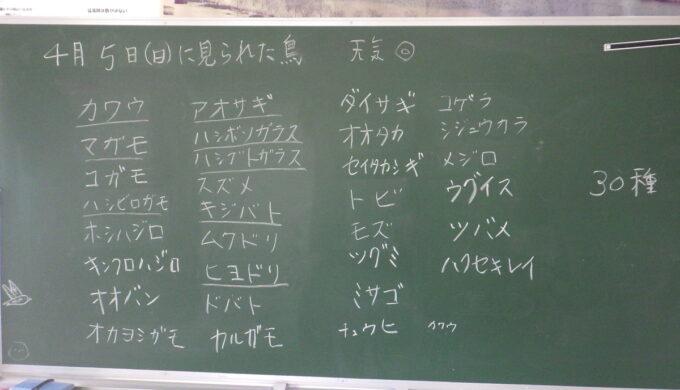 4月5日(日)に見られた鳥 天気 ◎
カワウ アオサギ ダイサギ コゲラ
マガモ ハシボソガラス オオタカ シジュウカラ
コガモ ハシブトガラス セイタカシギ メジロ
ハシビロガモ スズメ トビ ウグイス 30種
ホシハジロ キジバト モズ ツバメ
キンクロハジロ ムクドリ ツグミ ハクセキレイ
オオバン ヒヨドリ ミサゴ
オカヨシガモ ドバト チュウヒ カワウ
カルガモ